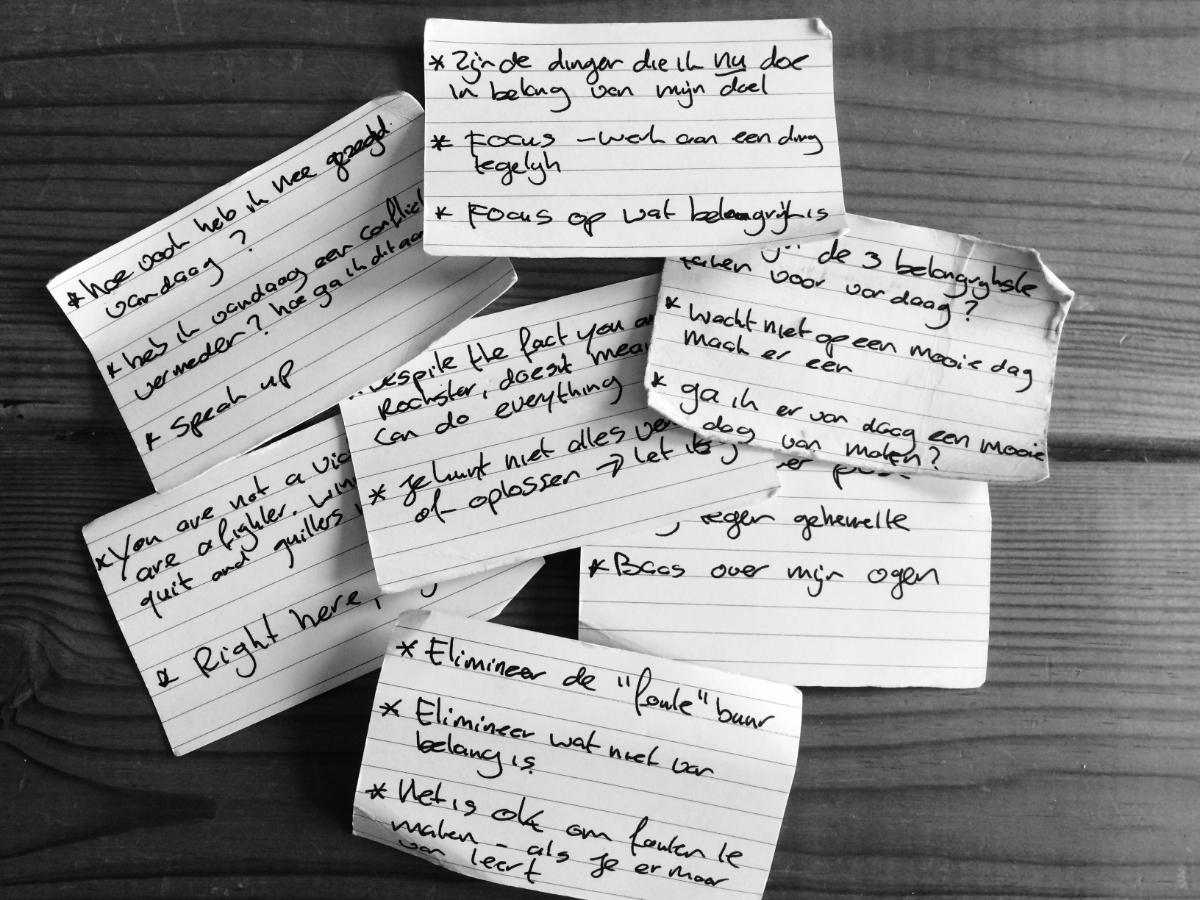 * Zijn de dingen die ik nu doe
in belang van mijn doel
* Focus - werk aan een ding
tegelijk
* Focus op wat belangrijk is
* hoe vaak heb ik nee gezegd
vandaag?
* heb ik vandaag een conflict
vermeden? hoe ga ik dit aan
* Speak up
de 3 belangrijkste
taken voor vandaag?
* wacht niet op een mooie dag
maak er een
* ga ik er vandaag een mooie
dag van maken?
Despite the fact you are
Rochster, doesnt mean
can do everything
* je kunt niet alles
of oplossen → let it
* You are not a
are a fighter.
quit and quitters
* Right here,
tegen
* Baas over mijn ogen
* Elimineer de "foute" buur
* Elimineer wat niet van
belang is
* Het is ok om fouten te
maken - als je er maar
van leert